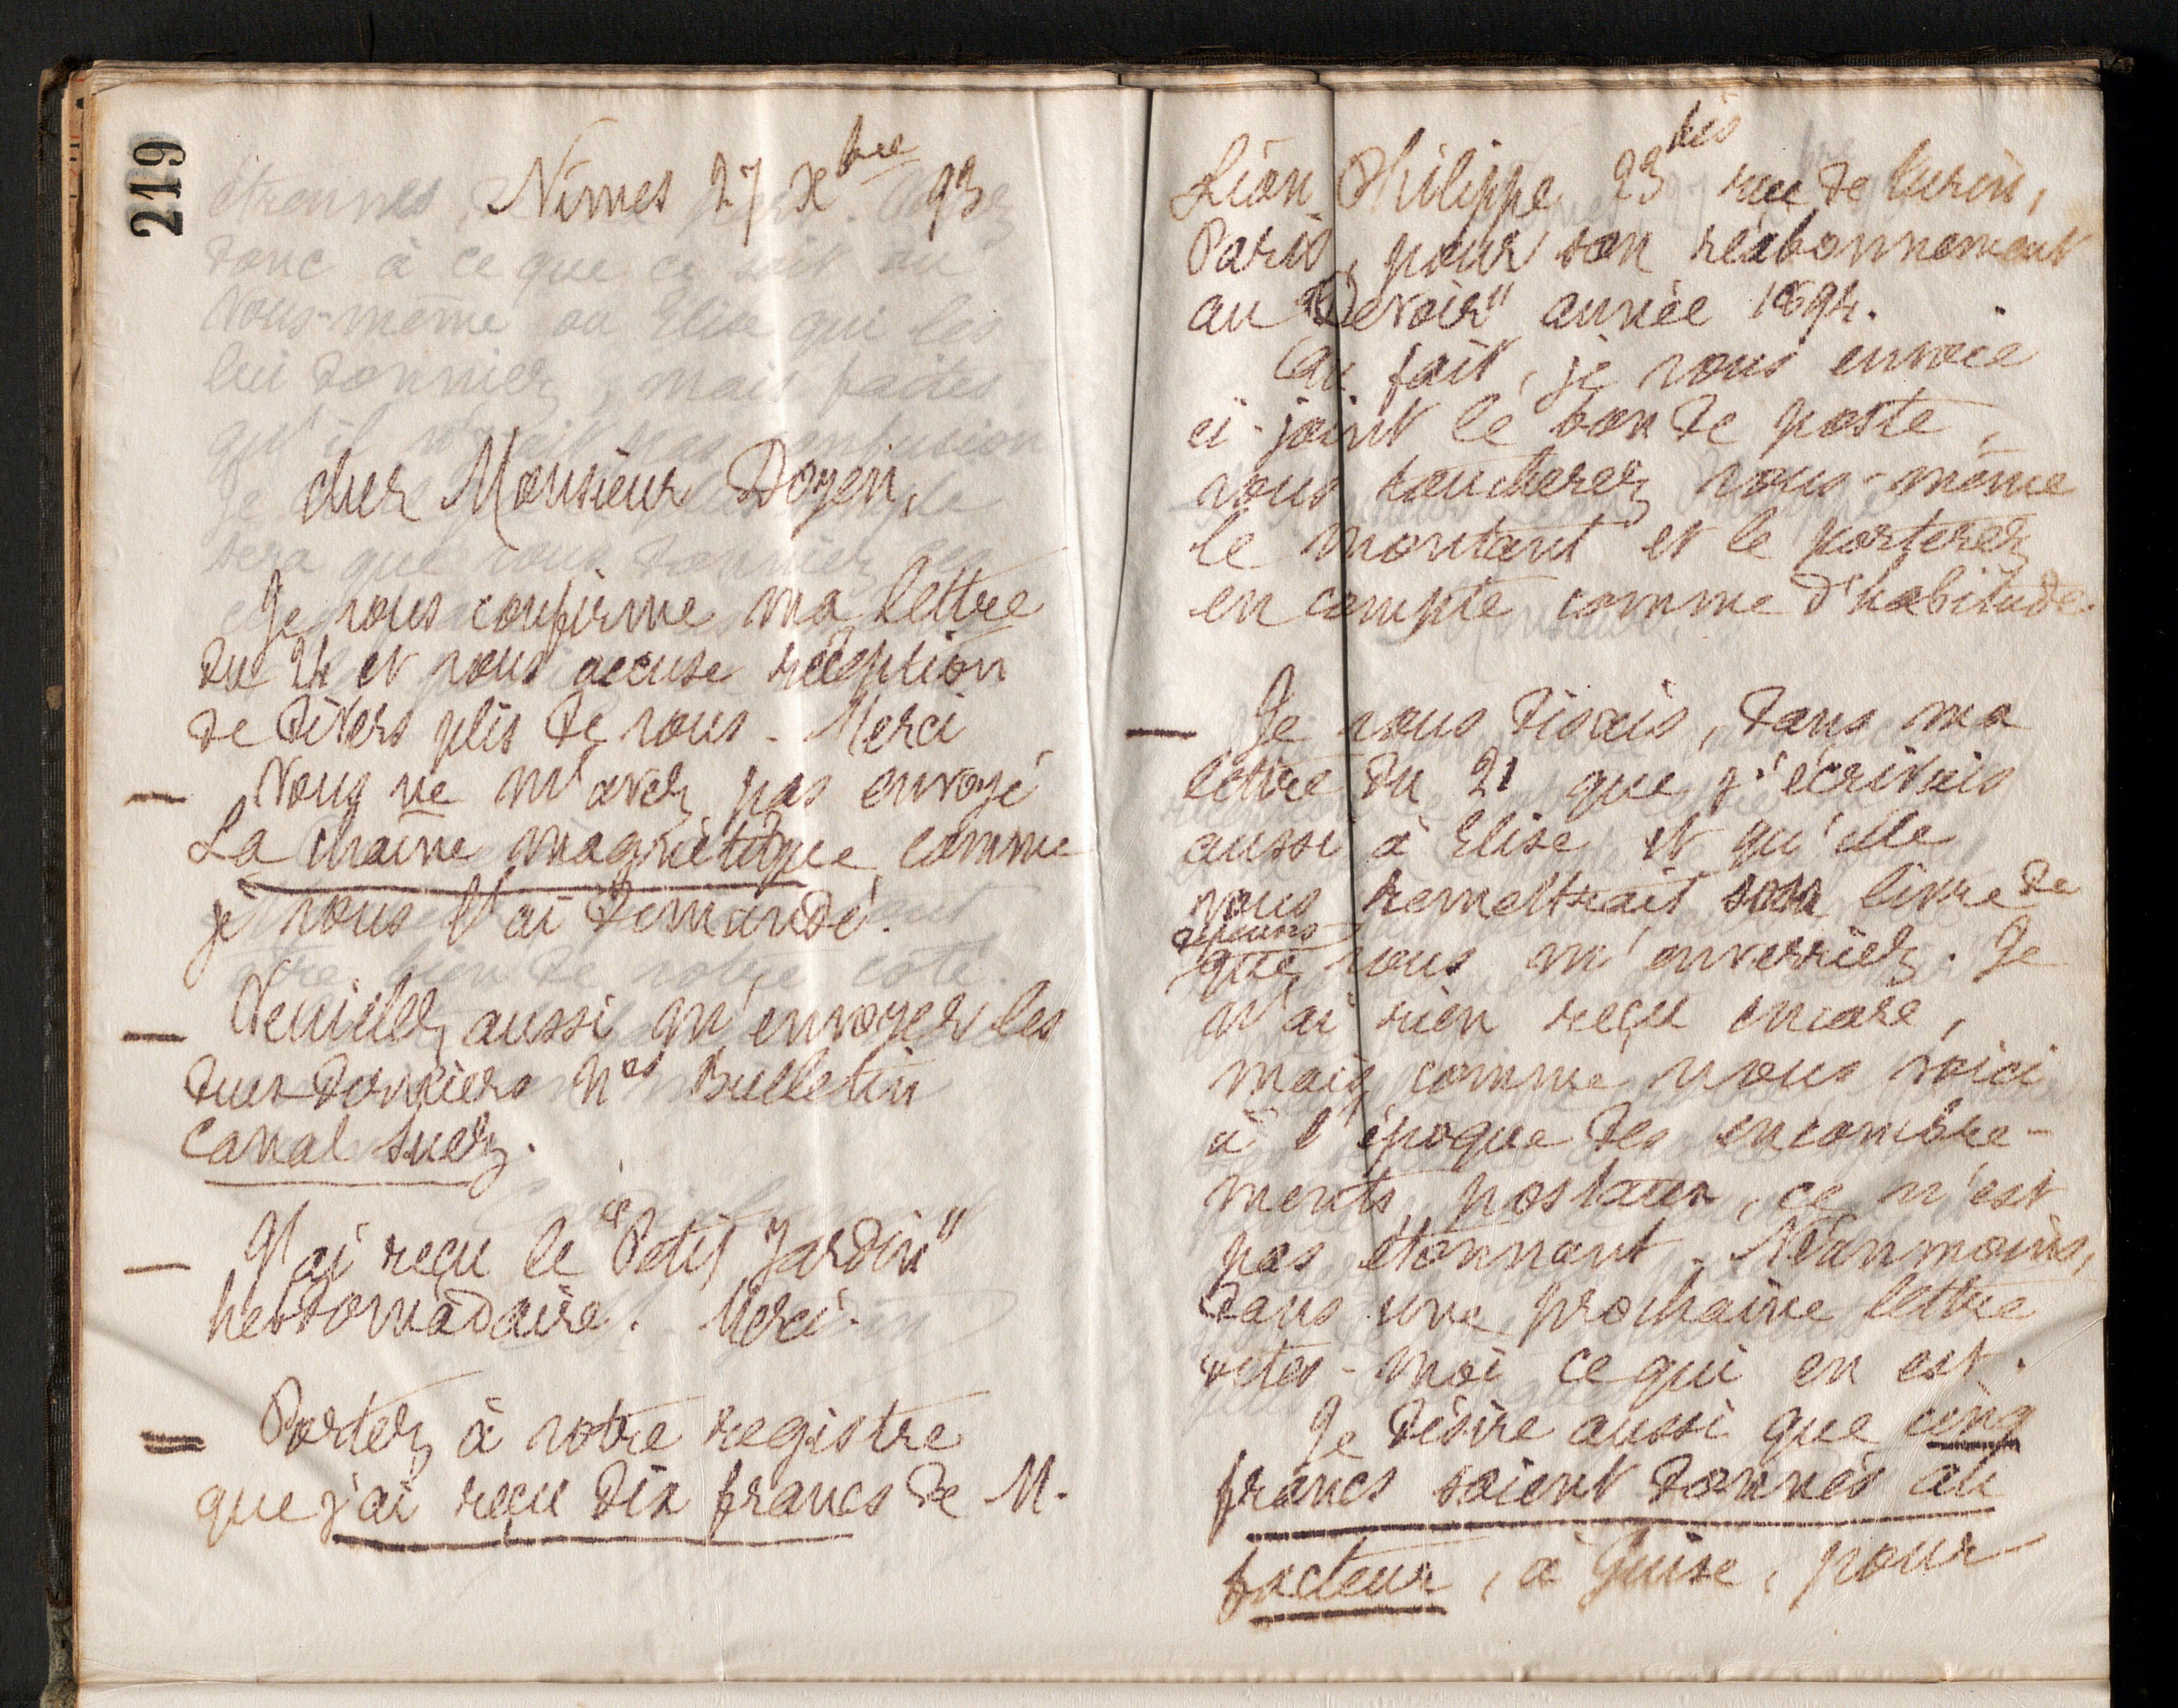 219
Nîmes 27 Xbre 93
cher Monsieur Doyen,
Je vous confirme ma lettre
du 24 et vous accuse réception
de divers plis de vous - Merci
— Vous ne m'avez pas envoyé
La chaîne magnétique comme
je vous l'ai demandé.
— Veuillez aussi m'envoyer les
deux derniers nos Bulletin
canal Suez.
— J'ai reçu le "Petit Jardin"
hebdomadaire. Merci.
— Portez à votre registre
que j'ai reçu dix francs de M.
Léon Philippe 23 bis rue de Turin,
Paris, pour son réabonnement
au "Devoir" année 1894.
Au fait, je vous envoie
ci-joint le bon de poste,
vous toucherez vous-même
le montant et le porterez
en compte comme d'habitude.
— Je vous disais, dans ma
lettre du 21 que j'écrivais
aussi à Elise et qu'elle
vous remettrait son livre de
dépenses
que vous m'enverriez. Je
n'ai rien reçu encore,
mais comme nous voici
à l'époque des encombre-
ments postaux, ce n'est
pas étonnant. Néanmoins,
dans une prochaine lettre
dites-moi ce qui en est.
Je désire aussi que cinq
francs soient donnés au
facteur, à Guise, pour